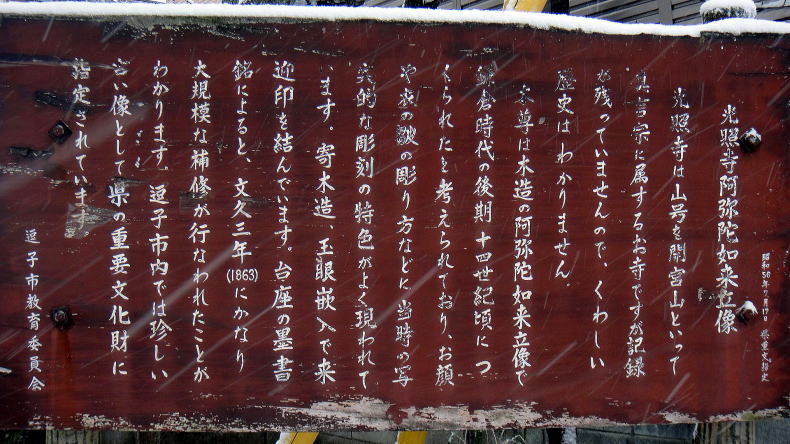 光照寺阿弥陀如来立像
昭和56年7月17日 県重文指定
光照寺は山号を開宮山といって
真言宗に属するお寺ですが記録
が残っていませんので、くわしい
歴史はわかりません。
本尊は木造の阿弥陀如来立像で
鎌倉時代の後期、十四世紀頃につ
くられたと考えられており、お顔
や衣の皺の彫り方などに当時の写
実的な彫刻の特色がよく現われて
います。寄木造、玉眼嵌入で来
迎印を結んでいます。台座の墨書
銘によると、文久三年(1863)にかなり
大規模な補修が行なわれたことが
わかります。逗子市内では珍しい
像として県の重要文化財に
指定されています。
逗子市教育委員会